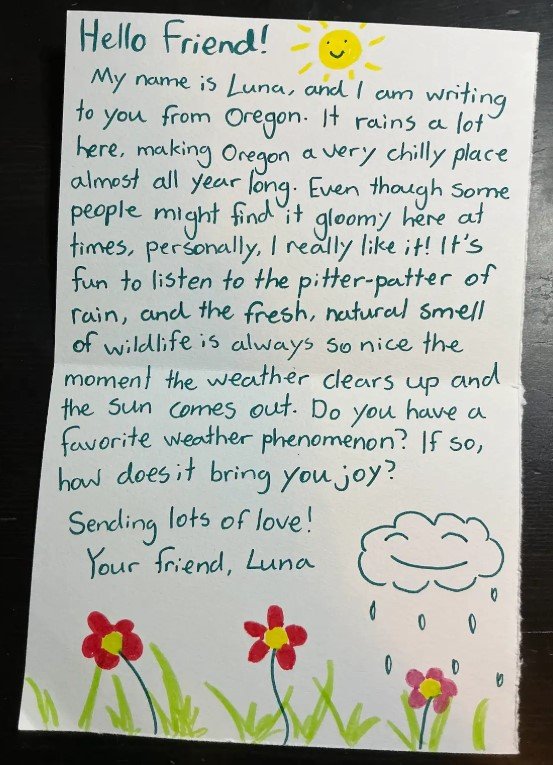 Hello Friend!
My name is Luna, and I am writing
to you from Oregon. It rains a lot
here, making Oregon a very chilly place
almost all year long. Even though some
people might find it gloomy here at
times, personally, I really like it! It's
fun to listen to the pitter-patter of
rain, and the fresh, natural smell
of wildlife is always so nice the
moment the weather clears up and
the sun comes out. Do you have a
favorite weather phenomenon? If so,
how does it bring you joy?
Sending lots of love!
Your friend, Luna